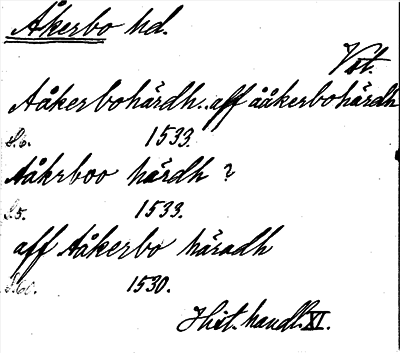 Åkerbo hd.
Vst.
Aåkerbohärdh.. aff ååkerbohärdh
S.6. 1533.
Aåkrboo härdh ?
S.5. 1533.
aff Aåkerbo häradh
1530.
Hist. handl. XI.